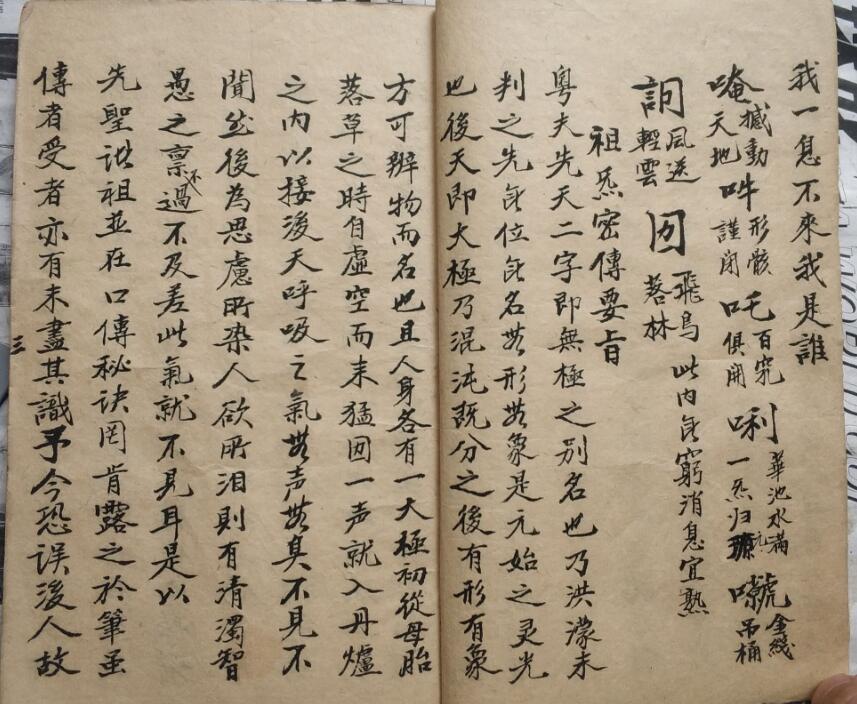 我一息不來我是誰
唵撼動天地吽形骸謹閉吒百竅俱開唎華池水滿一炁归元㘁金綫吊桶
訶風送輕雲囙飛鸟落林此内无窮消息宜熟
祖炁密傳要旨
粤夫先天二字即無極之别名也乃洪濛未
判之先无位无名无形无象是元始之灵光
也後天即太極乃混沌既分之後有形有象
方可辨物而名也且人身各有一大極初從母胎
落草之時自虛空而来猛囙一声就入丹爐
之内以接後天呼吸之氣无声无臭不見不
聞然後為思慮所染人欲所汩則有清濁智
愚之禀不過不及差此氣就不見耳是以
先聖诎祖並在口傳秘诀罔肯露之於筆虽
傳者受者亦有未盡其識予今恐误後人故
三